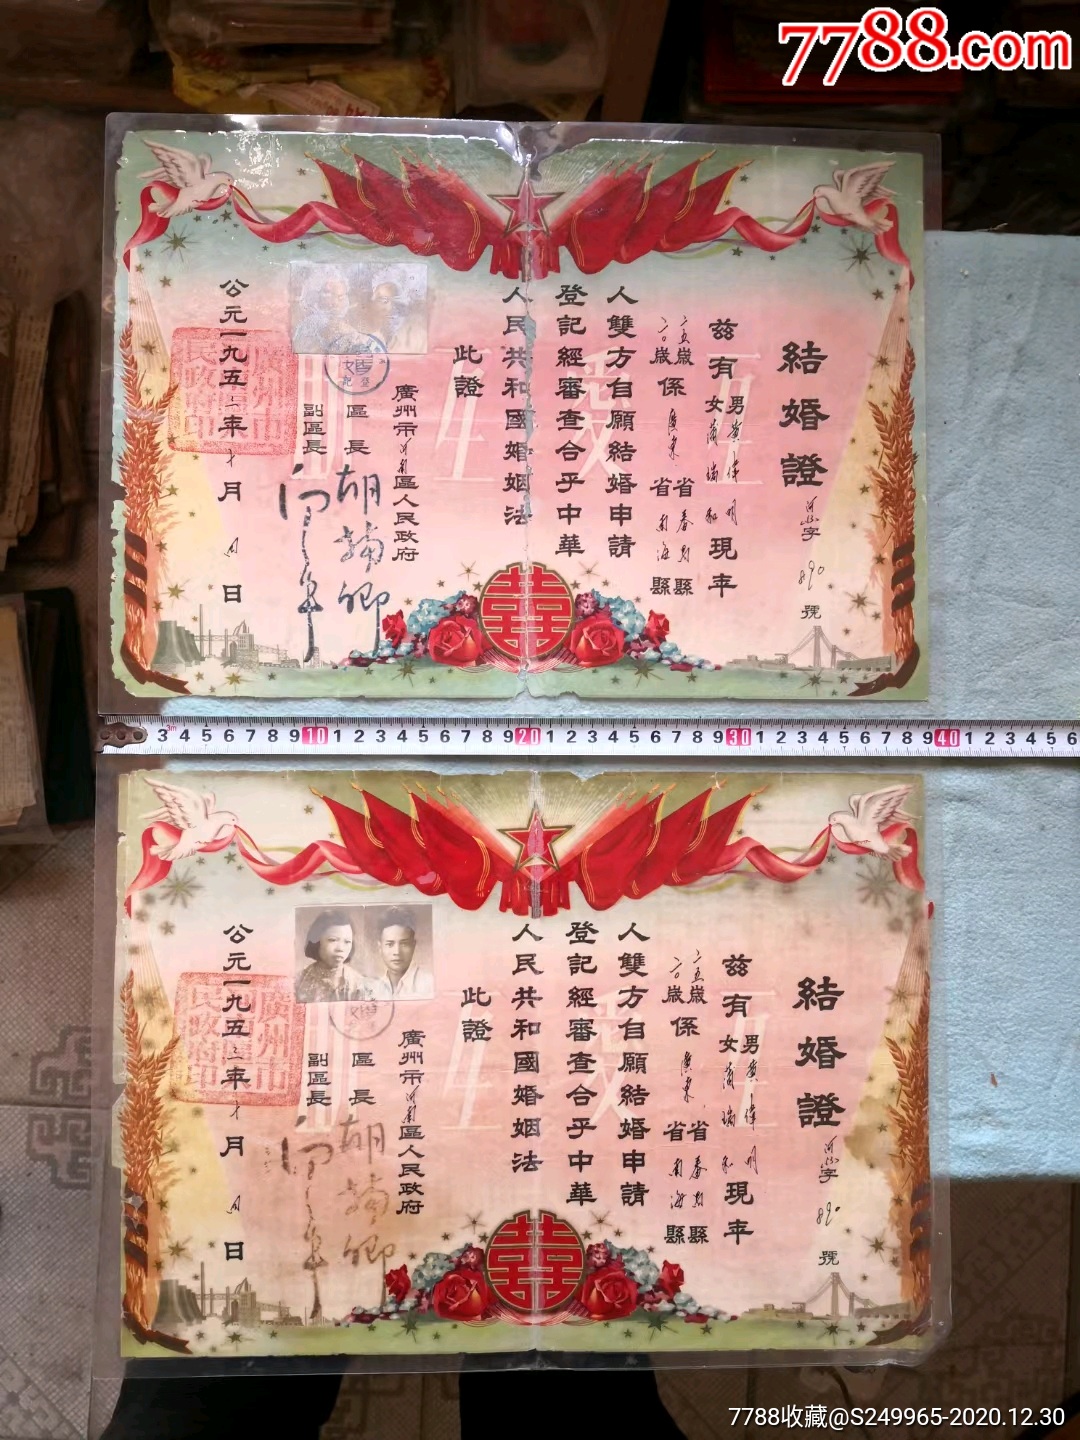 7788.com
結婚證
河結字890號
兹有男黄偉明現年二五歲係廣東省番禺縣
女蒲瑞和二〇歲省南海縣
人雙方自願結婚申請
登記經審查合乎中華
人民共和國婚姻法
此證
廣州市河南區人民政府
區長胡輔卿
副區長
公元一九五二年十月日
3 4 5 6 7 8 9 10 1 2 3 4 5 6 7 8 9 20 1 2 3 4 5 6 7 8 9 30 1 2 3 4 5 6 7 8 9 40 1 2 3 4 5 6
結婚證
河結字890號
兹有男黄偉明現年二五歲係廣東省番禺縣
女蒲瑞和二〇歲省南海縣
人雙方自願結婚申請
登記經審查合乎中華
人民共和國婚姻法
此證
廣州市河南區人民政府
區長胡輔卿
副區長
公元一九五二年十月日
7788收藏@S249965-2020.12.30